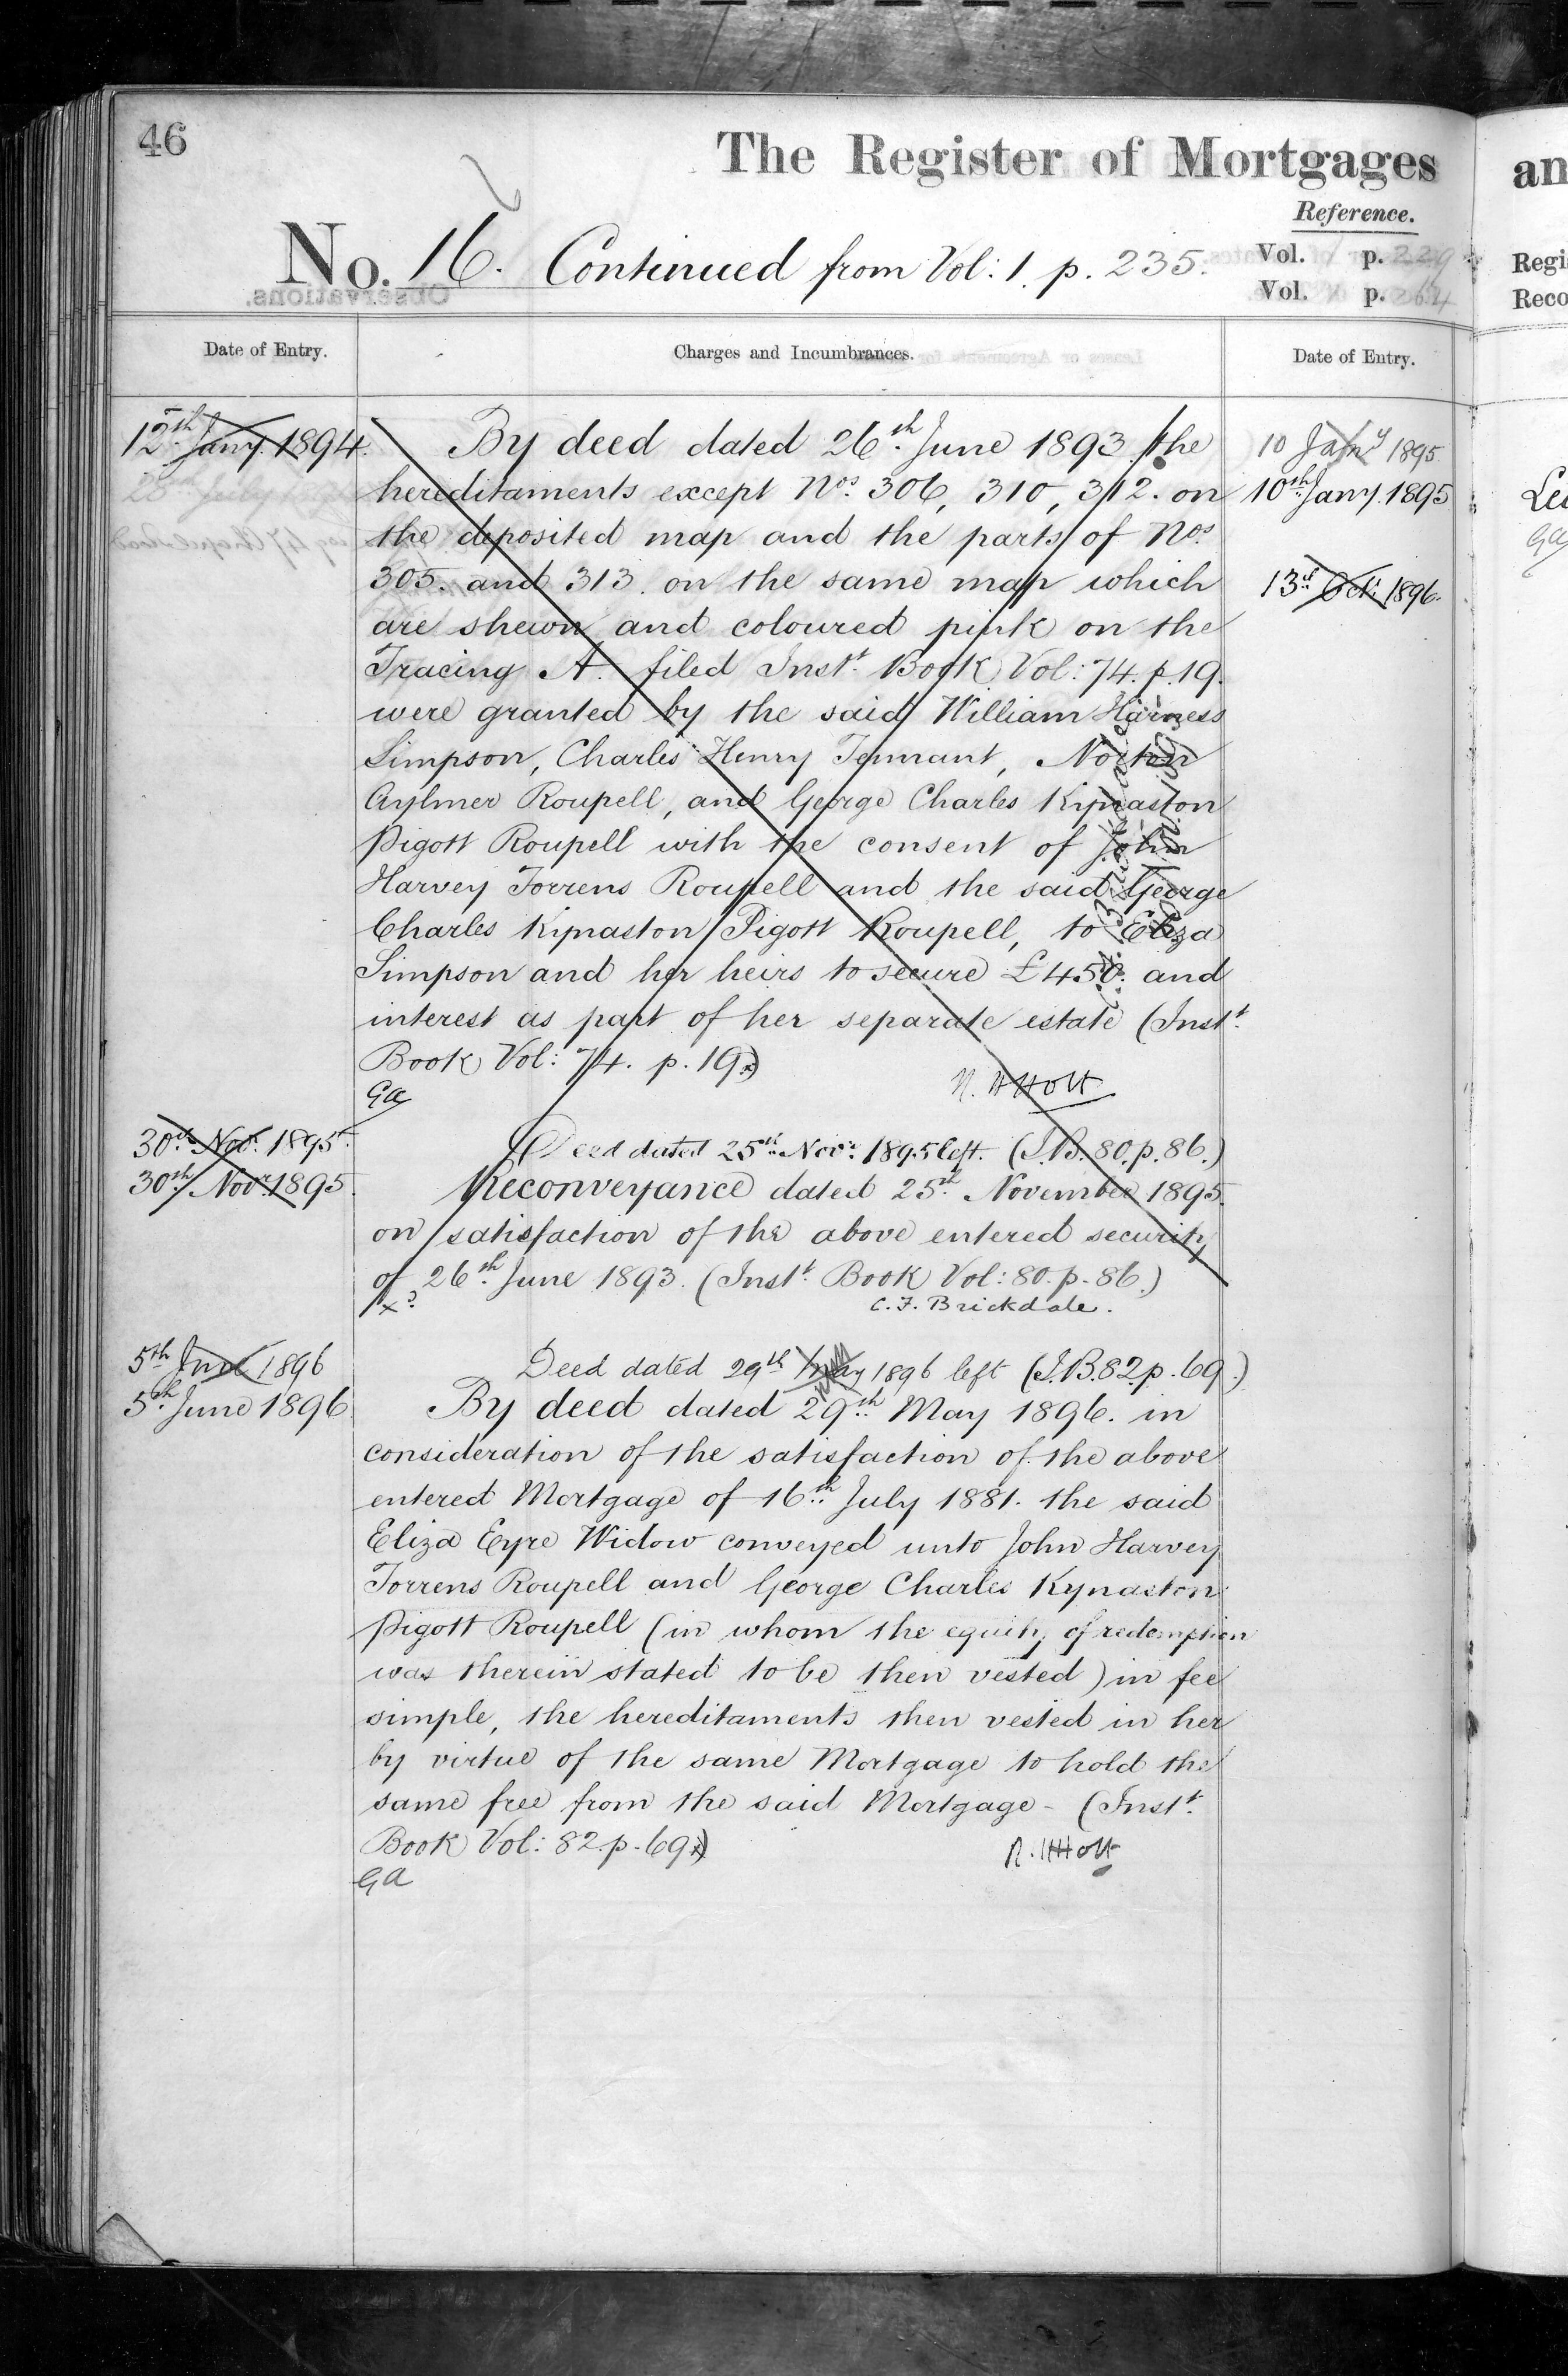 46
The Register of Mortgages
Reference.
No. 16. Continued from Vol: 1. p. 235.
Vol. 1 p. 229
Vol. p. 264
Date of Entry.
Charges and Incumbrances.
Date of Entry.
12th Jany. 1894.
By deed dated 26th June 1893 the
hereditaments except Nos. 306, 310, 312. on
the deposited map and the parts of Nos.
305. and 313. on the same map which
are shewn and coloured pink on the
Tracing A. filed Instt. Book Vol: 74. p. 19.
were granted by the said William Harness
Simpson, Charles Henry Tennant, Norton
Aylmer Roupell, and George Charles Kynaston
Pigott Roupell with the consent of John
Harvey Torrens Roupell and the said George
Charles Kynaston Pigott Roupell, to Eliza
Simpson and her heirs to secure £450. and
interest as part of her separate estate (Instt.
Book Vol: 74. p. 19.)
GA
N. H Holt
30th Nov. 1895.
Deed dated 25th Novr. 1895 left. (I.B. 80. p. 86.)
30th Novr. 1895.
Reconveyance dated 25th November 1895.
on satisfaction of the above entered security
of 26th June 1893. (Instt. Book Vol: 80. p. 86.)
C. F. Brickdale.
5th June 1896
Deed dated 29th May 1896 left (I.B. 82 p. 69.)
5th June 1896
By deed dated 29th May 1896. in
consideration of the satisfaction of the above
entered Mortgage of 16th July 1881. the said
Eliza Eyre Widow conveyed unto John Harvey
Torrens Roupell and George Charles Kynaston
Pigott Roupell (in whom the equity of redemption
was therein stated to be then vested) in fee
simple, the hereditaments then vested in her
by virtue of the same Mortgage to hold the
same free from the said Mortgage - (Instt.
Book Vol: 82. p. 69.)
GA
N. H Holt
10 Jany 1895
10th Jany. 1895
13th Oct: 1896.
an
Regi
Reco
GA